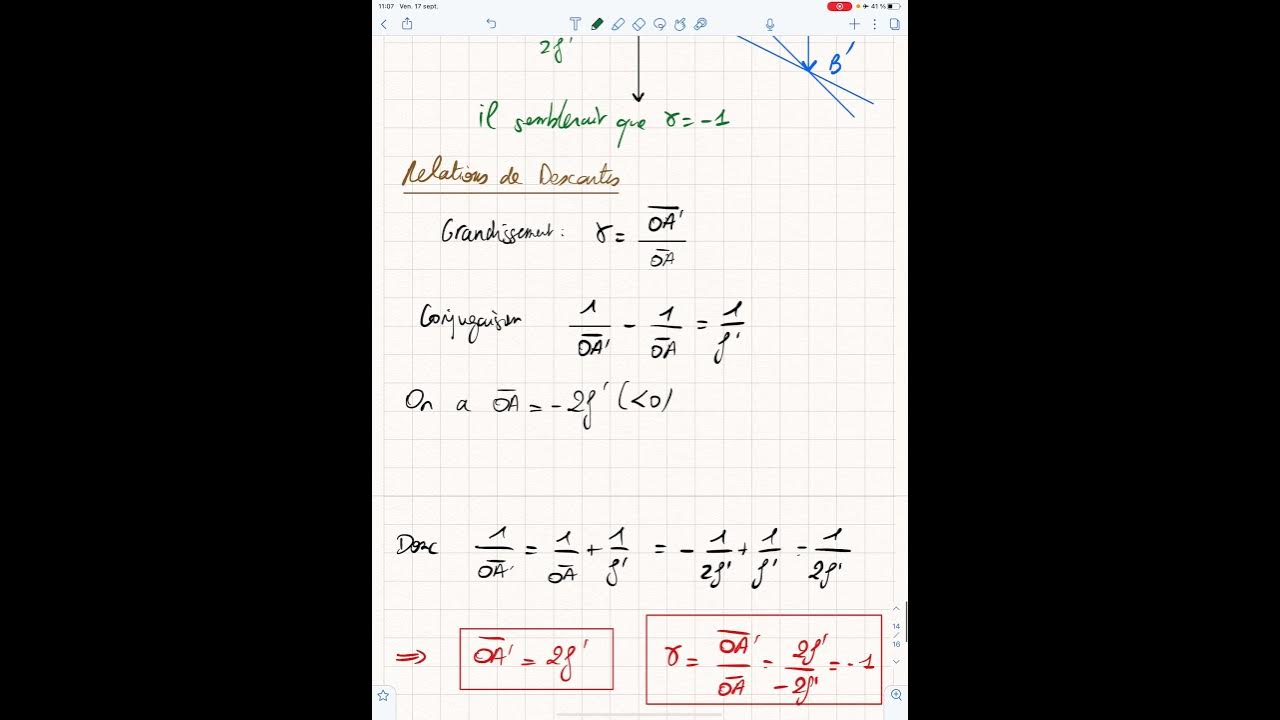 11:07 Ven. 17 sept. 41 %
2f'
B'
il semblerait que γ = -1
Relations de Descartes
Grandissement : γ = OA' / OA
Conjugaison 1/OA' - 1/OA = 1/f'
On a OA = -2f' (<0)
Donc 1/OA' = 1/OA + 1/f' = -1/2f' + 1/f' = 1/2f'
⇒ OA' = 2f' γ = OA'/OA = 2f'/-2f' = -1
14
/
16